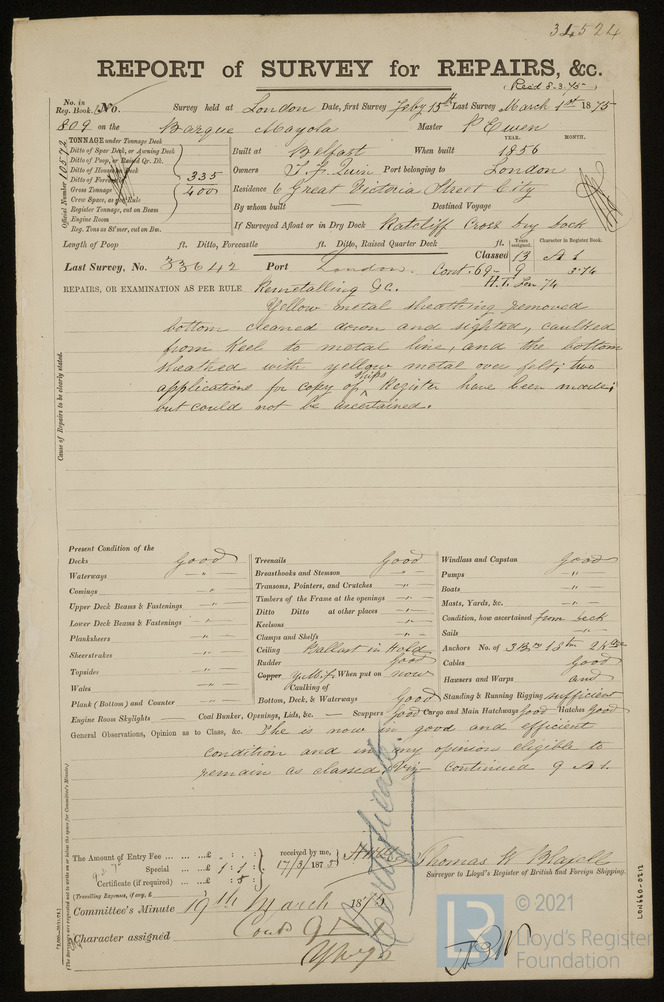 34524
REPORT of SURVEY for REPAIRS, &c.
(Recd 8.3.75)
No. in Reg. Book. No. Survey held at London Date, first Survey Feby 15th Last Survey March 1st 1875
809 on the Barque Mayola Master P Ewen
TONNAGE under Tonnage Deck
Ditto of Spar Deck, or Awning Deck
Ditto of Poop, or Raised Qr. Dk.
Ditto of House on Deck
Ditto of Forecastle 335
Gross Tonnage 400
Crew Space, as per Rule
Register Tonnage, cut on Beam
Engine Room
Reg. Tons as St'mer, cut on Bm.
Official Number 10572
YEAR. MONTH.
Built at Belfast When built 1856
Owners Port belonging to London
Residence 6 Great Victoria Street City
By whom built — Destined Voyage
If Surveyed Afloat or in Dry Dock Ratcliff Cross Dry Dock
Length of Poop ft. Ditto, Forecastle ft. Ditto, Raised Quarter Deck ft.
Years assigned. Character in Register Book.
Classed 13 A 1
Last Survey, No. 33642 Port London. Cont. 69- 9 3.74
H.T. Lon 74
REPAIRS, OR EXAMINATION AS PER RULE Remetalling &c.
Yellow metal sheathing removed
bottom cleaned down and sighted, caulked
from Keel to metal line, and the bottom
sheathed with yellow metal over felt; two
applications for copy of ships Register have been made;
but could not be ascertained.
Cause of Repairs to be clearly stated.
Present Condition of the
Decks good
Waterways — " —
Comings — " —
Upper Deck Beams & Fastenings — " —
Lower Deck Beams & Fastenings — " —
Planksheers — " —
Sheerstrakes — " —
Topsides — " —
Wales — " —
Plank (Bottom) and Counter — " —
Treenails good
Breasthooks and Stemson — " —
Transoms, Pointers, and Crutches — " —
Timbers of the Frame at the openings — " —
Ditto Ditto at other places — " —
Keelsons — " —
Clamps and Shelfs — " —
Ceiling Ballast in Hold
Rudder good
Copper When put on now
Caulking of
Bottom, Deck, & Waterways Good
Windlass and Capstan good
Pumps — " —
Boats — " —
Masts, Yards, &c. — " —
Condition, how ascertained from deck
Sails — " —
Anchors No. of
Cables Good
Hawsers and Warps and
Standing & Running Rigging sufficient
Engine Room Skylights — Coal Bunker, Openings, Lids, &c. — Scuppers good Cargo and Main Hatchways good Hatches good
General Observations, Opinion as to Class, &c. She is now in good and efficient
condition and in my opinion eligible to
remain as classed, Viz continued 9 A 1.
Certificate
The Amount of Entry Fee ... £ : : received by me,
Special ... £ 1 : 1 : 17/3/1875
Certificate (if required) ... £ : 5 :
(Travelling Expenses, if any, £ )
Thomas W Blazell
Surveyor to Lloyd's Register of British and Foreign Shipping.
Committee's Minute 19th March 1875
Character assigned Contd 9 A 1
(The Surveyors are requested not to write on or below the space for Committee's Minute.)
LON660-0212
© 2021
Lloyd's Register
Foundation